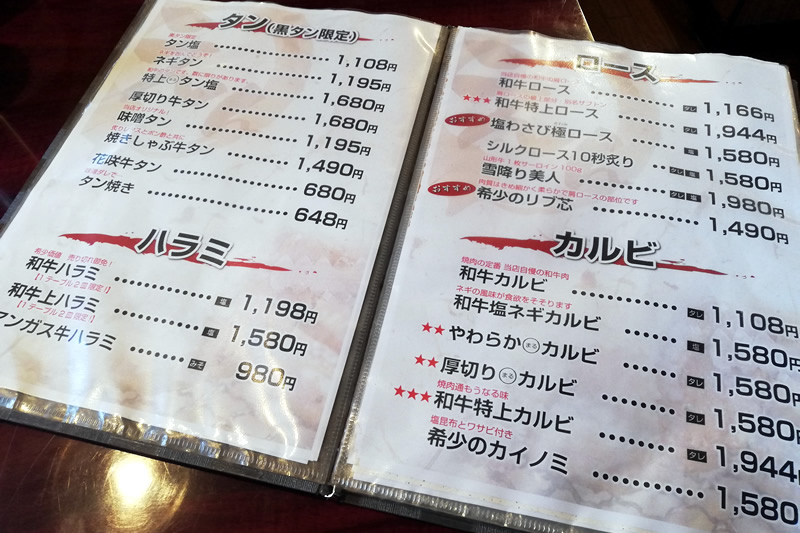 タン(黒タン限定)
タン塩 1,108円
ネギタン 1,195円
特上まるタン塩 1,680円
厚切り牛タン 1,680円
当店オリジナル!
味噌タン 1,195円
焼きしゃぶ牛タン 1,490円
花咲牛タン 680円
タン焼き 648円
ハラミ
和牛ハラミ 塩 1,198円
【1テーブル2皿限定!】
和牛上ハラミ 塩 1,580円
【1テーブル2皿限定!】
アンガス牛ハラミ みそ 980円
ロース
和牛ロース タレ 1,166円
★★★ 和牛特上ロース タレ 1,944円
おすすめ 塩わさび極ロース 塩 1,580円
シルクロース10秒炙り タレ 1,580円
山形牛1枚サーロイン 100g
雪降り美人 タレ 塩 1,980円
肉質はきめ細かく柔らかで肩ロースの部位です
おすすめ 希少のリブ芯 1,490円
カルビ
焼肉の定番 当店自慢の和牛肉
和牛カルビ タレ 1,108円
ネギの風味が食欲をそそります
和牛塩ネギカルビ 塩 1,580円
★★ やわらかまるカルビ タレ 1,580円
★★ 厚切りまるカルビ タレ 1,580円
焼肉通もうなる味
★★★ 和牛特上カルビ タレ 1,944円
塩昆布とワサビ付き
希少のカイノミ 1,580円